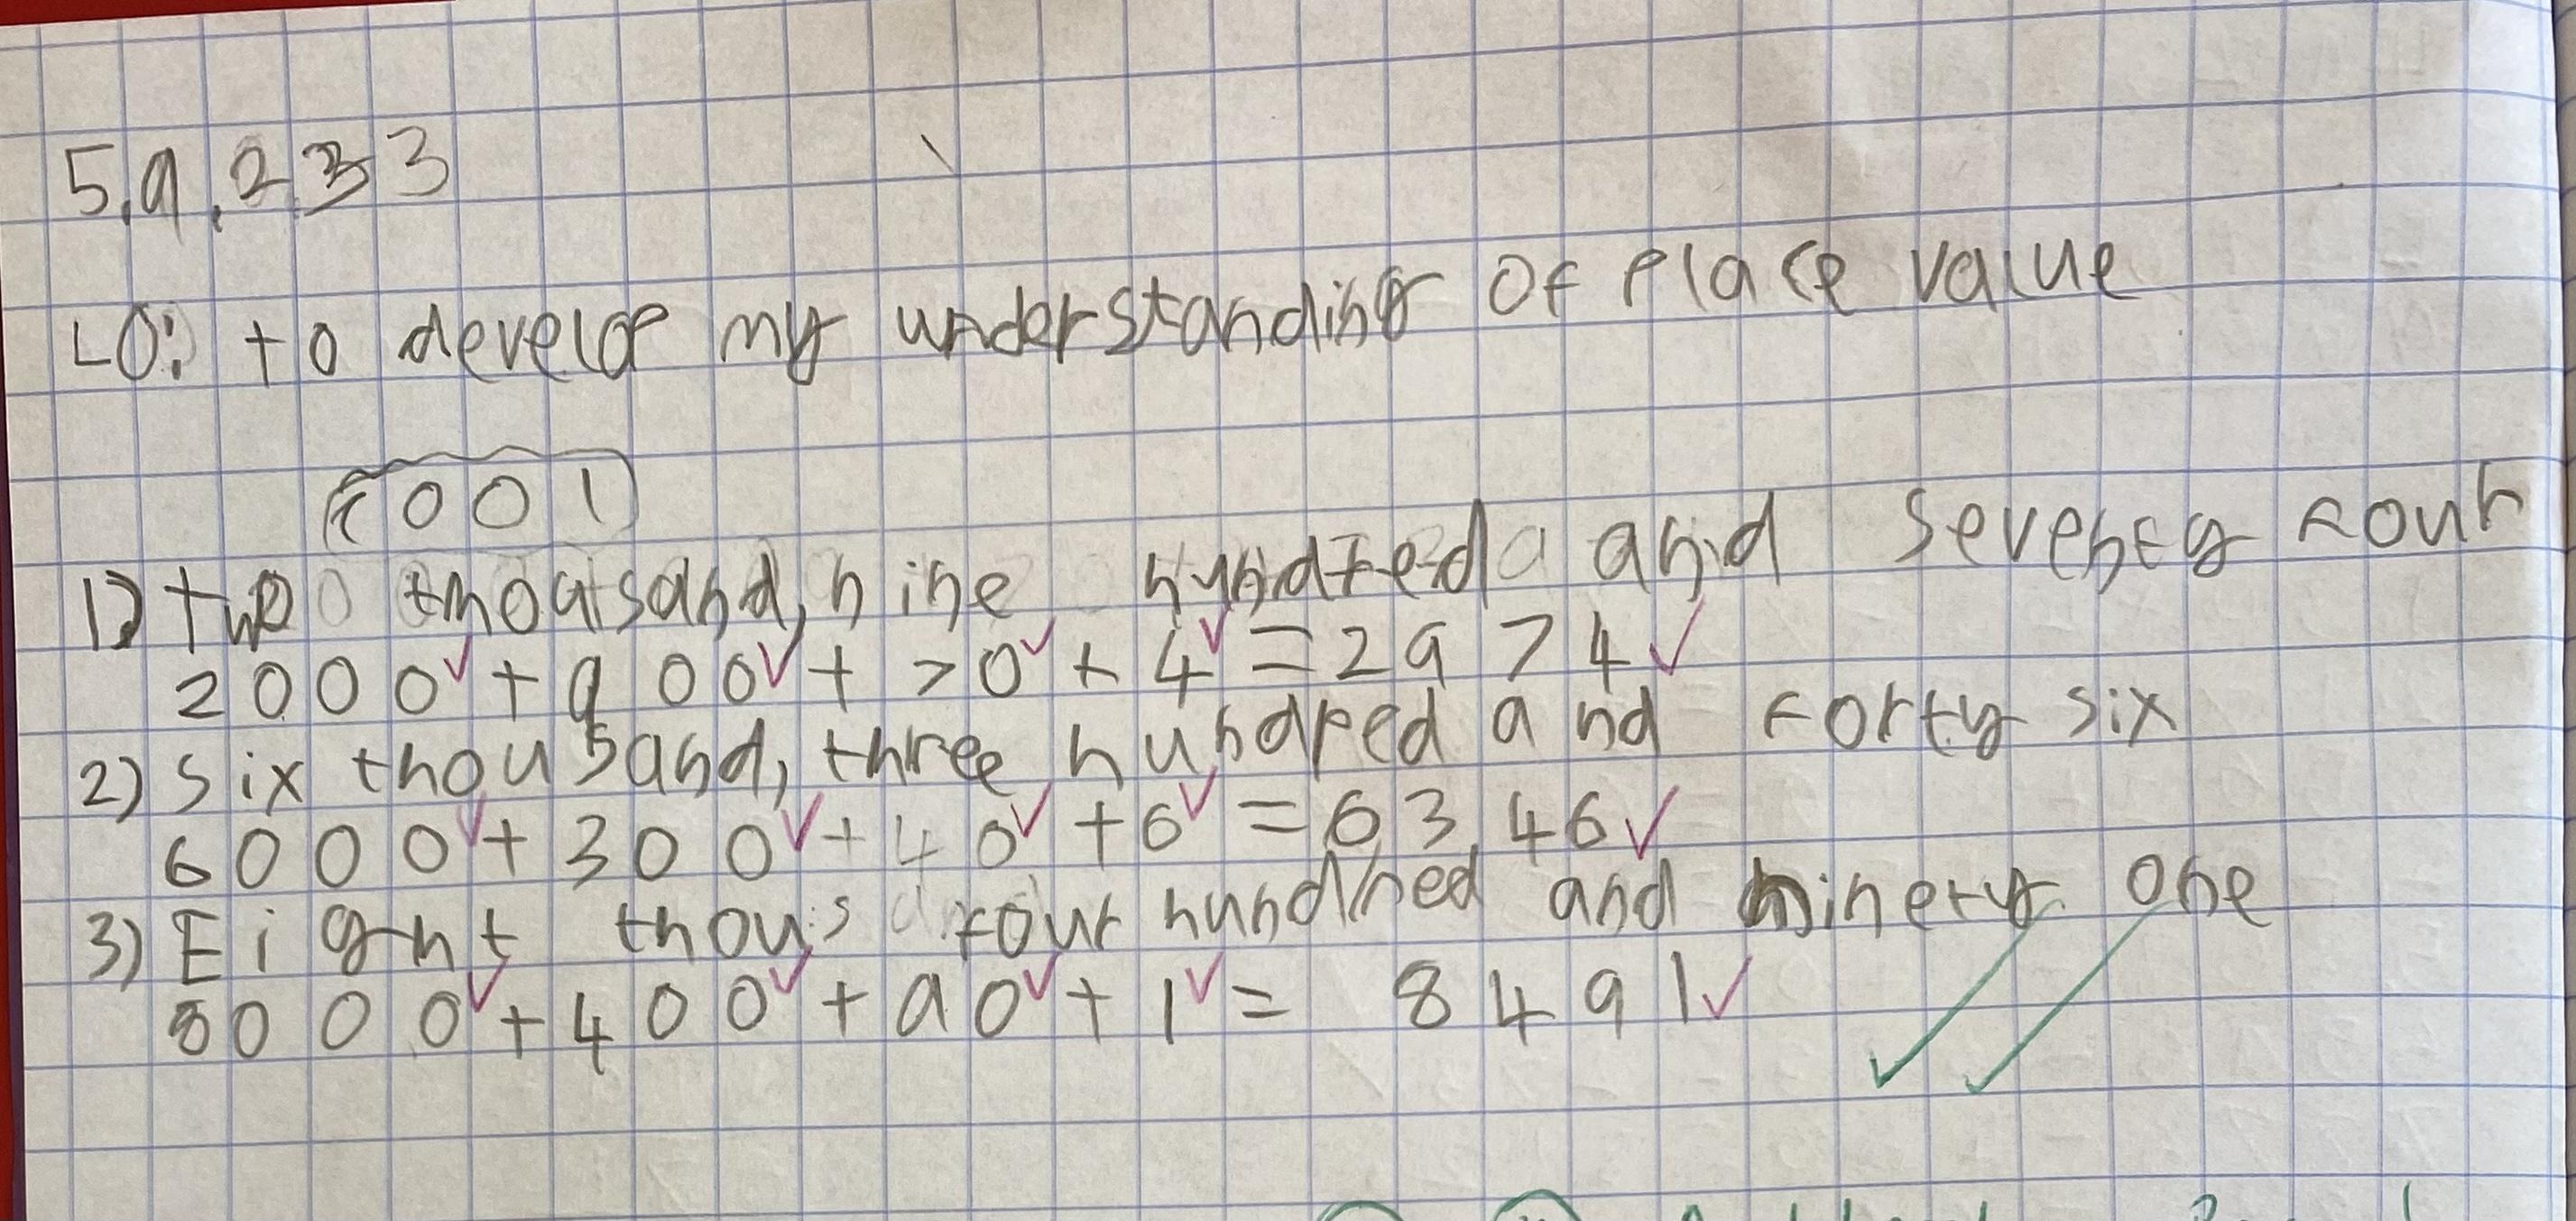 5.9.23 3
LO: to develop my understanding of place value
1001
1) two thousand, nine hundred and seventy four
2000 + 900 + 70 + 4 = 2974
2) six thousand, three hundred and forty six
6000 + 300 + 40 + 6 = 6346
3) Eight thous four hundred and ninety one
8000 + 400 + 90 + 1 = 8491